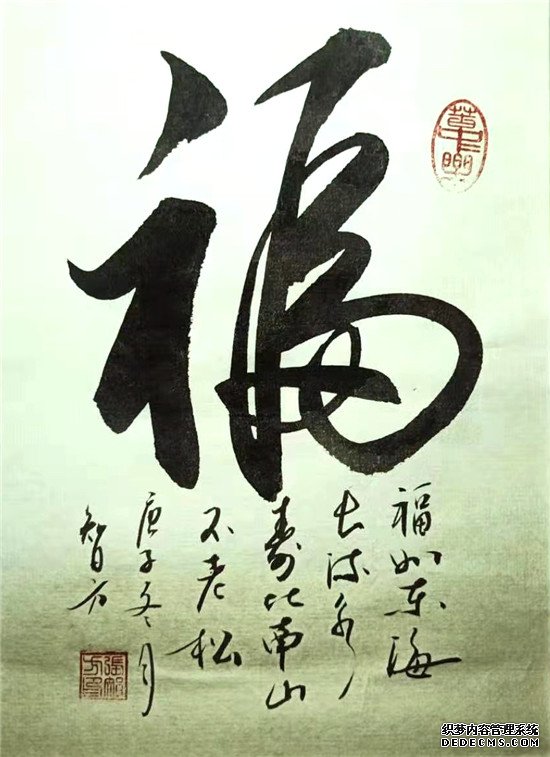 福
福如东海
长流水
寿比南山
不老松
庚子冬月
智方
织梦内容管理系统
DEDECMS.COM